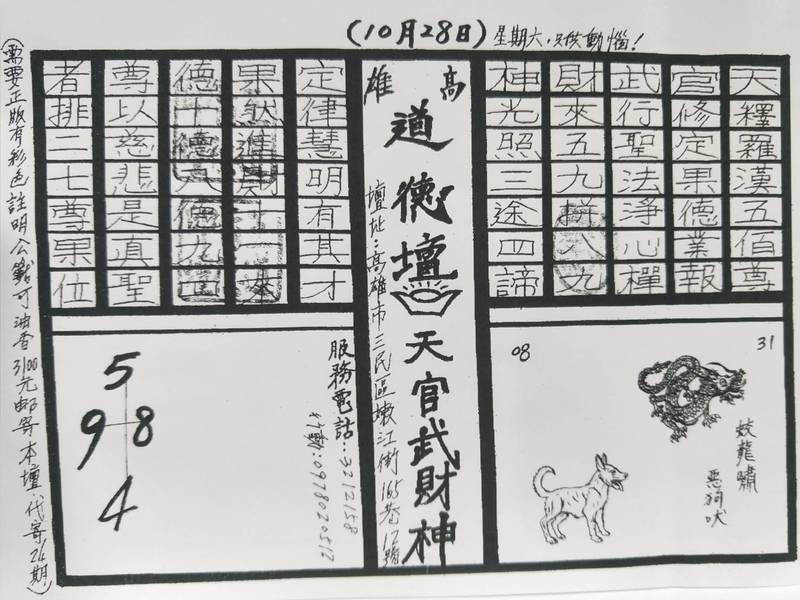 (10月28日)星期六,只供動惱!
天釋羅漢五佰尊
官修定果德業報
武行聖法淨心樿
財來五九拼八九
神光照三途四諦
高雄
道德壇
天官武財神
壇址:高雄市三民區墩江街165巷12號
定律慧明有其才
果然進財十一來
德十德八德九四
尊以慈悲是真聖
者排二七尊果位
31
08
蛟龍嘯
惡狗吠
服務電話:3212158
行動:0978020512
5
9 8
4
(需要正版有彩色註明公鑒可油香3100元邮寄本壇.代寄24期.)